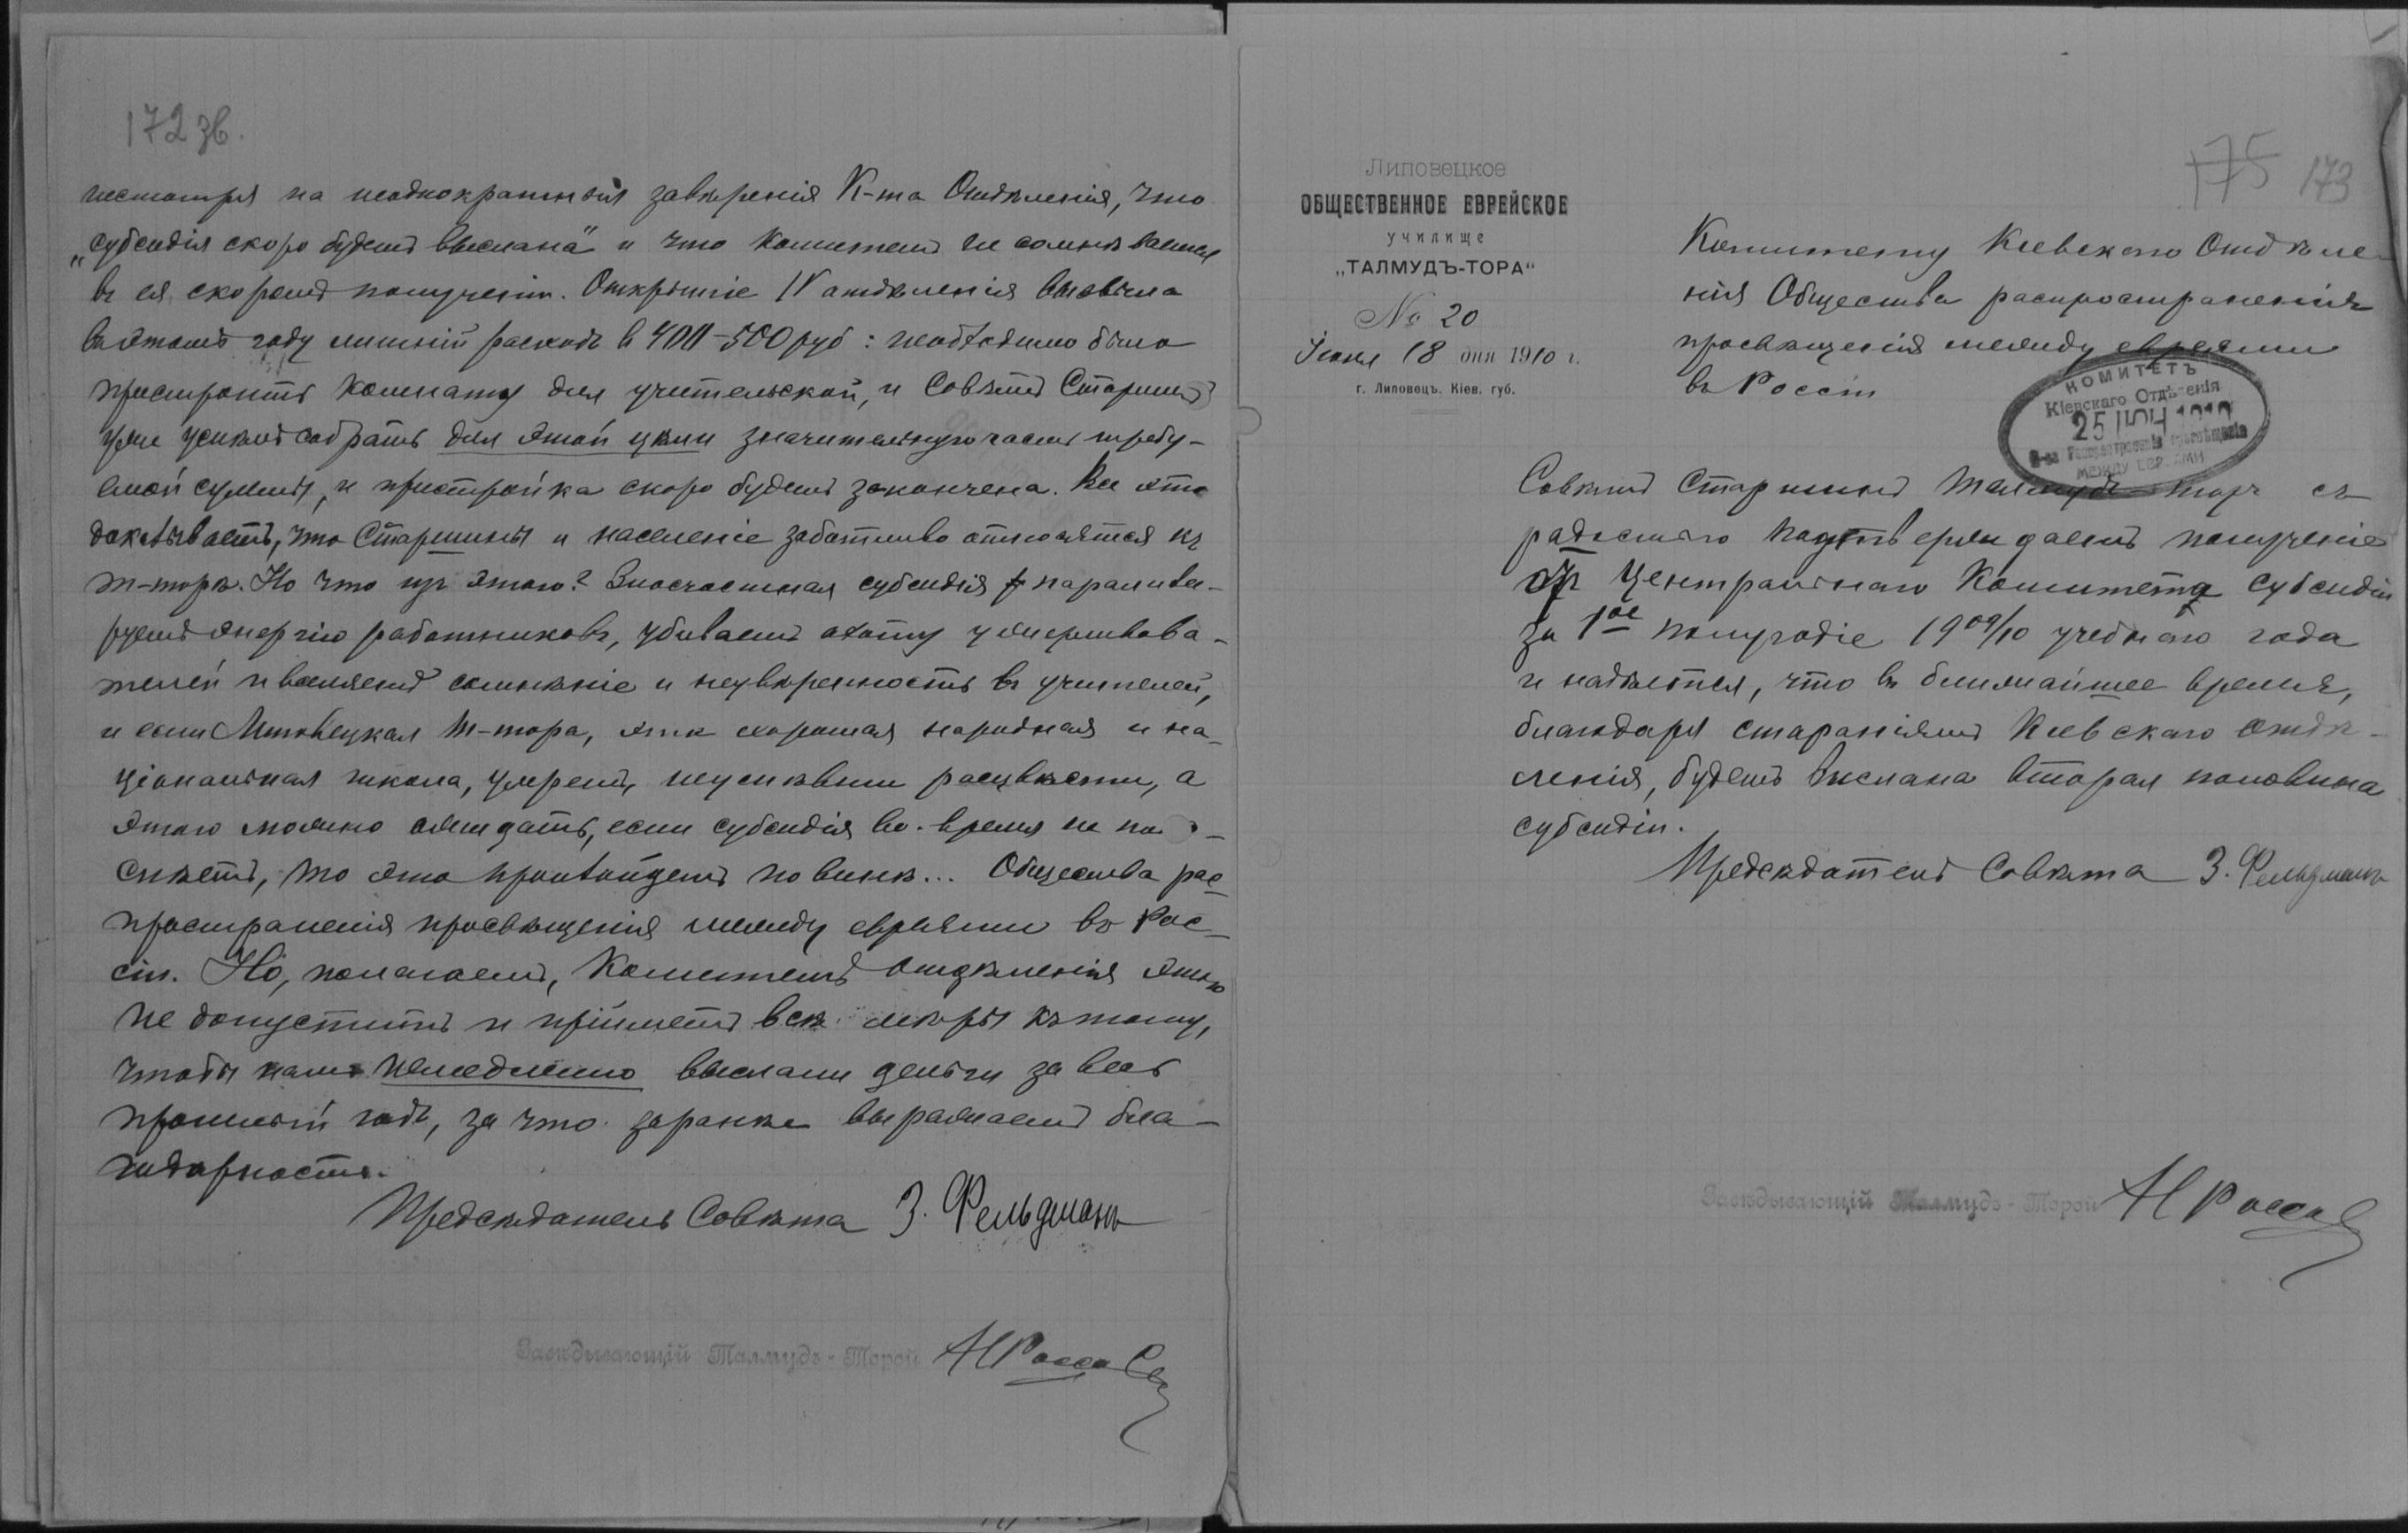 172 зв.
несмотря на неоднократныя завѣренія К-та Отдѣленія, что
„субсидія скоро будетъ выслана" и что Комитетъ не сомнѣвается
въ ея скоромъ полученіи. Открытіе IV отдѣленія вызвало
въ этомъ году лишній расходъ в 400-500 руб: необходимо было
пристроить комнату для учительской, и Совѣтъ Старшинъ
уже успѣлъ собрать для этой цѣли значительную часть требу-
емой суммы, и пристройка скоро будетъ закончена. Все это
доказываетъ, что Старшины и население заботливо относятся къ
т-торѣ. Но что изъ этого? Злосчастная субсидія парализи-
руетъ энергію работниковъ, убиваетъ охоту у жертвова-
телей и вселяетъ сомнѣніе и неувѣренность въ учителей,
и если Липовецкая т-тора, эта хорошая народная и на-
ціональная школа, умретъ, не успѣвши расцвѣсти, а
этого можно ожидать, если субсидія во-время не по-
спѣетъ, то это произойдетъ по винѣ... Общества рас-
пространенія просвѣщенія между евреями въ Рос-
сіи. Но, полагаемъ, Комитетъ Отдѣленія этого
не допуститъ и прійметъ всѣ мѣры къ тому,
чтобы намъ немедленно выслали деньги за весь
прошлый годъ, за что заранѣе выражаемъ бла-
годарность.
Предсѣдатель Совѣта З. Фельдманъ
Завѣдывающій Талмудъ-Торой
175 173
Липовецкое
ОБЩЕСТВЕННОЕ ЕВРЕЙСКОЕ
училище
„ТАЛМУДЪ-ТОРА"
№ 20
Іюня 18 дня 1910 г.
г. Липовецъ. Кіев. губ.
Комитету Кіевскаго Отдѣле-
нія Общества распространенія
просвѣщенія между евреями
въ Россіи
КОМИТЕТЪ
Кіевскаго Отдѣленія
25 ІЮН 1910
О-ва Распространенія просвѣщенія
МЕЖДУ ЕВРЕЯМИ
Совѣтъ Старшинъ Талмудъ-торы съ
радостью подтверждаетъ полученіе
отъ Центральнаго Комитета субсидіи
за 1ое полугодіе 1909/10 учебнаго года
и надѣется, что въ ближайшее время,
благодаря стараніямъ Кіевскаго Отдѣ-
ленія, будетъ выслана вторая половина
субсидіи.
Предсѣдатель Совѣта З. Фельдманъ
Завѣдывающій Талмудъ-Торой